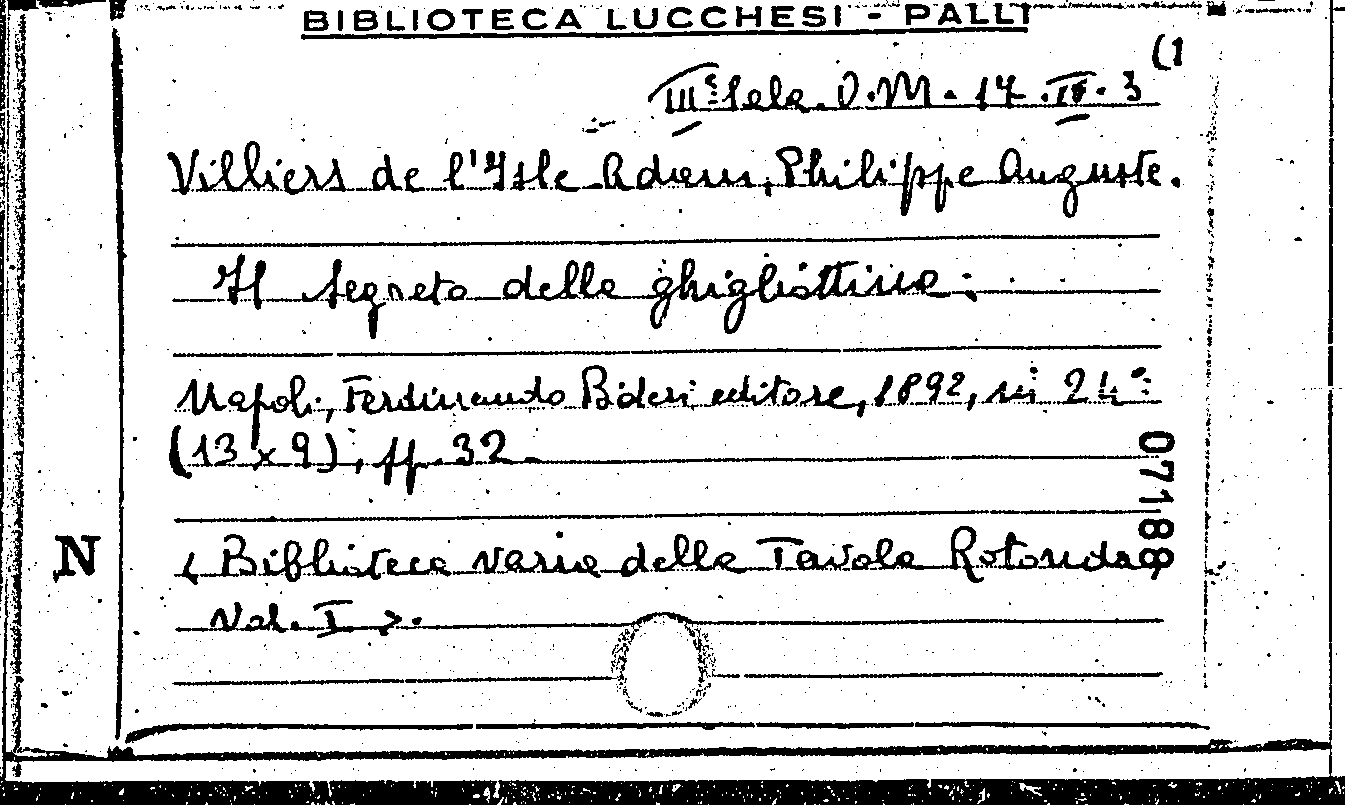 BIBLIOTECA LUCCHESI - PALLI
(1
IIIª Sala. O.M. 17.IV.3
Villiers de l'Isle Adam, Philippe Auguste.
Il segreto della ghigliottina:
Napoli, Ferdinando Bideri editore, 1892, in 24°:
(13 x 9), pp. 32.
07188
N
< Biblioteca varia della Tavola Rotonda
Vol. I >.